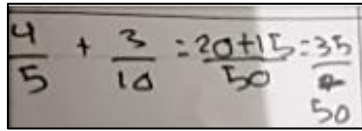 4/5 + 3/10 = 20+15/50 = 35/50